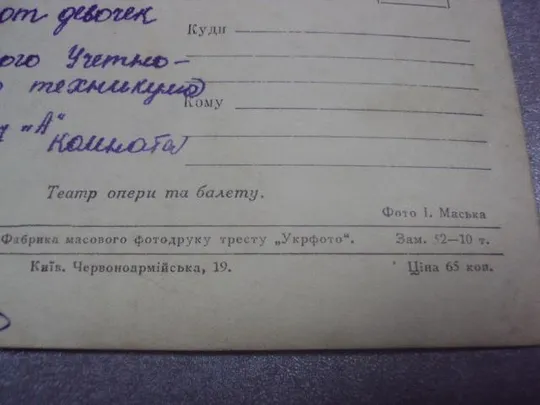 от девочек
Куди
ого Учетно-
техникума
Кому
"А"
комната
Театр опери та балету.
Фото І. Маська
Фабрика масового фотодруку тресту „Укрфото“. Зам. 52—10 т.
Київ. Червоноармійська, 19. Ціна 65 коп.